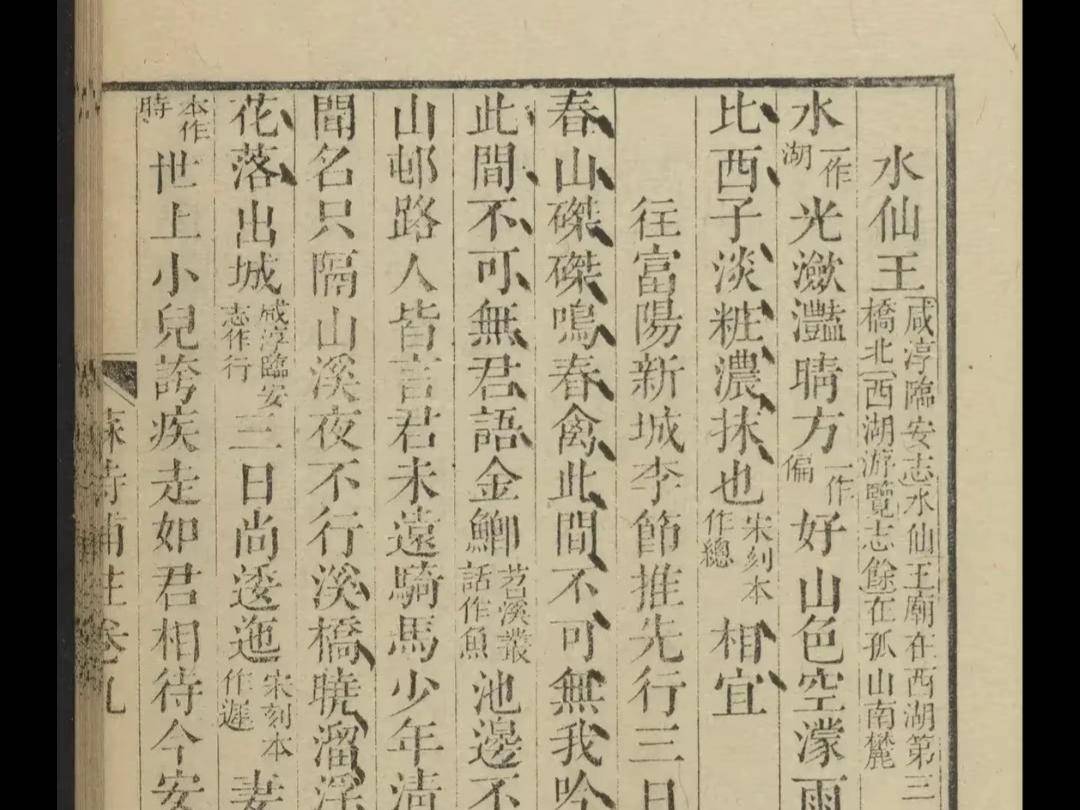 水仙王咸淳臨安志水仙王廟在西湖第三橋北西湖游覽志餘在孤山南麓
水一作湖光瀲灩晴方一作偏好山色空濛雨
比西子淡粧濃抹也宋刻本作總相宜
往富陽新城李節推先行三日
春山磔磔鳴春禽此間不可無我吟
此間不可無君語金鯽苕溪叢話作魚池邊不
山邨路人皆言君未遠騎馬少年清
聞名只隔山溪夜不行溪橋曉溜浮
花落出城咸淳臨安志作行三日尚逶迤宋刻本作遲妻
本作時世上小兒誇疾走如君相待今安
蘇詩補註卷九